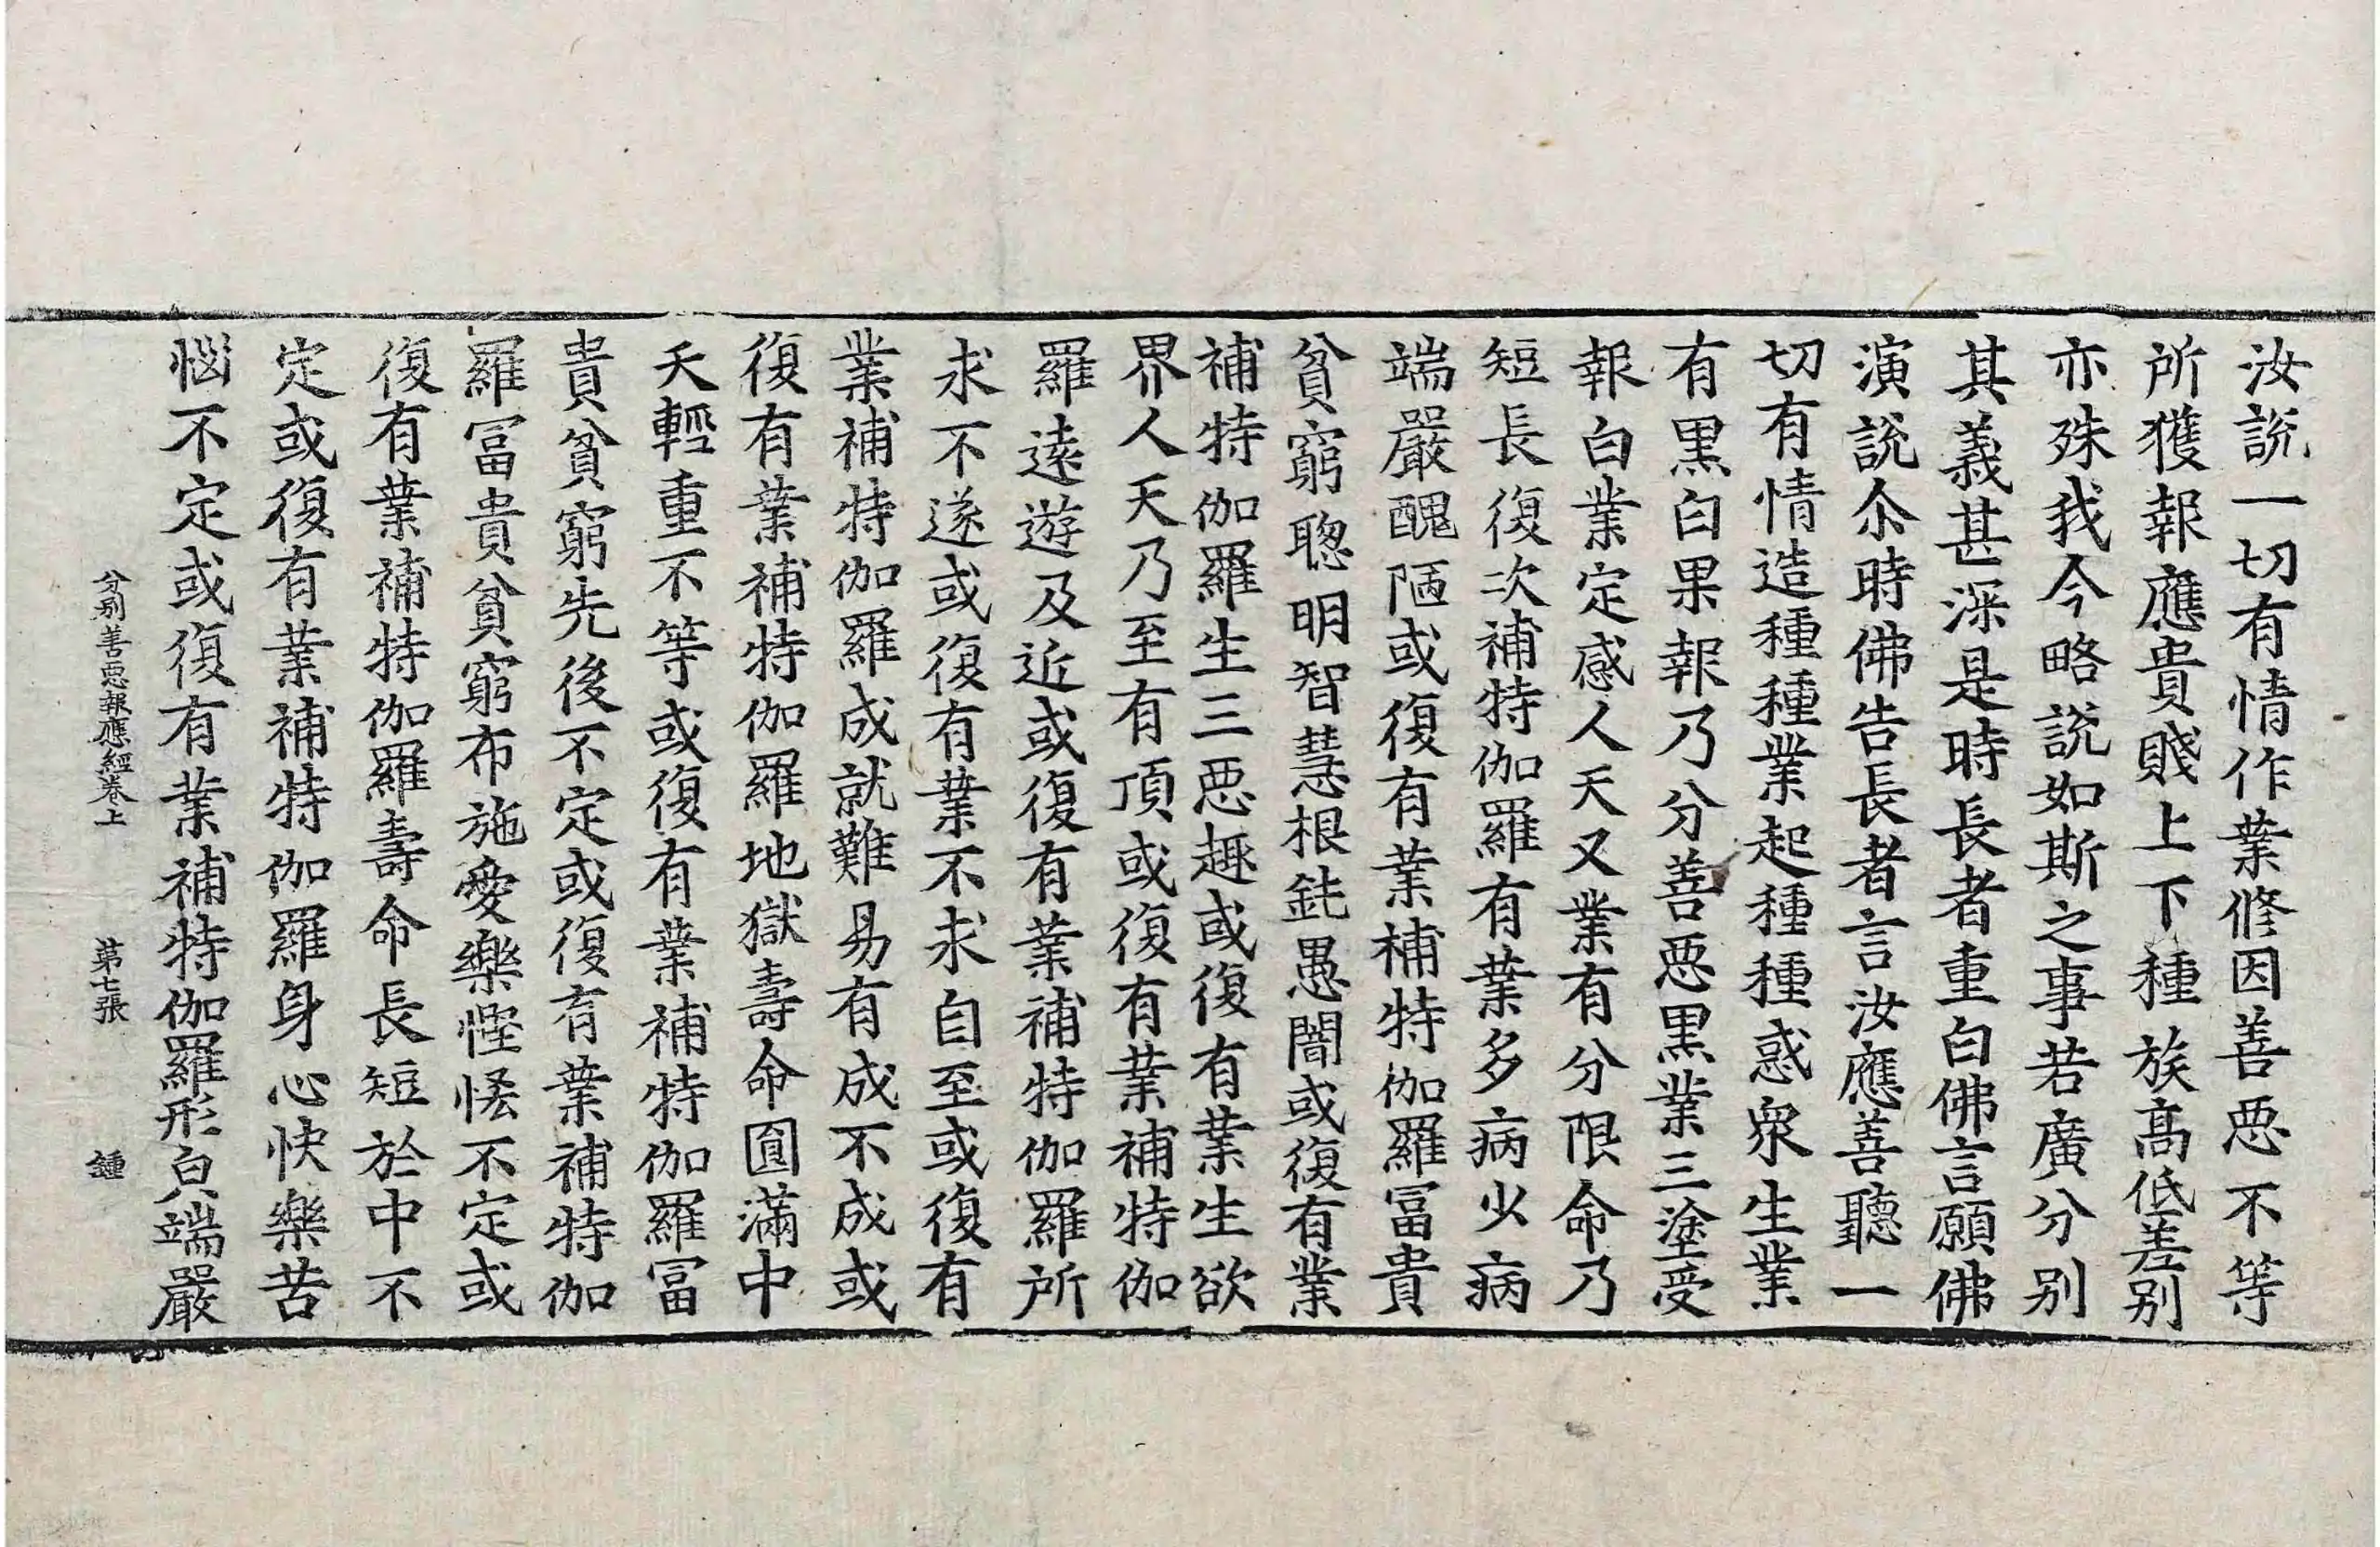 汝說一切有情作業修因善惡不等
所獲報應貴賤上下種族高低差别
亦殊我今略說如斯之事若廣分别
其義甚深是時長者重白佛言願佛
演說尒時佛告長者言汝應善聽一
切有情造種種業起種種惑衆生業
有黑白果報乃分善惡黑業三塗受
報白業定感人天又業有分限命乃
短長復次補特伽羅有業多病少病
端嚴醜陋或復有業補特伽羅冨貴
貧窮聦明智慧根鈍愚闇或復有業
補特伽羅生三惡趣或復有業生欲
界人天乃至有頂或復有業補特伽
羅遠遊及近或復有業補特伽羅所
求不遂或復有業不求自至或復有
業補特伽羅成就難易有成不成或
復有業補特伽羅地獄壽命圓滿中
夭輕重不等或復有業補特伽羅冨
貴貧窮先後不定或復有業補特伽
羅冨貴貧窮布施愛樂慳悋不定或
復有業補特伽羅壽命長短於中不
定或復有業補特伽羅身心快樂苦
惱不定或復有業補特伽羅形皃端嚴
分别善惡報應經卷上 第七張 鍾